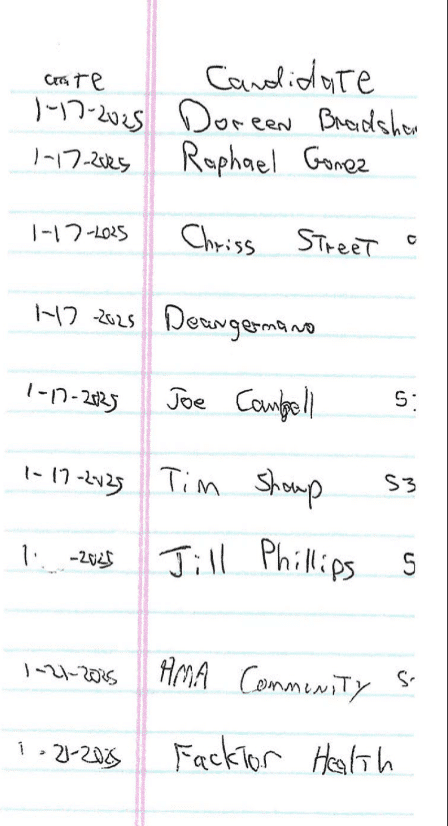 Date Candidate
1-17-2025 Doreen Bradshaw
1-17-2025 Raphael Gomez
1-17-2025 Chriss STreeT
1-17-2025 Deangermano
1-17-2025 Joe Campbell
1-17-2025 Tim Sharp S3
1- -2025 Jill Phillips S
1-21-2025 HMA CommuniTy S
1-21-2025 FackTor Health